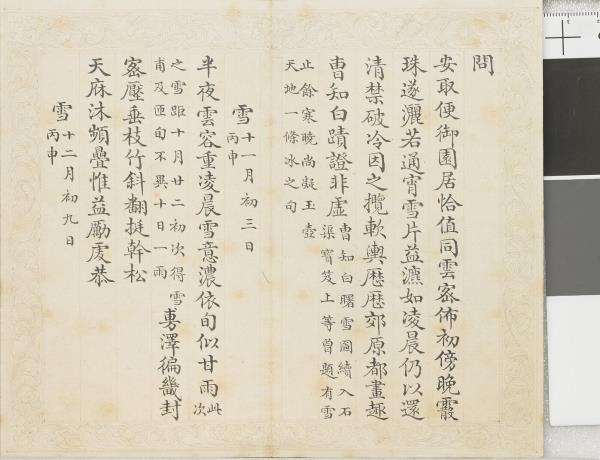 問
安取便御園居恰值同雲密佈初傍晚霰
珠遂灑若通宵雪片益濂如凌晨仍以還
清禁破冷因之攬軟輿歷歷郊原都畫趣
曹知白蹟證非虛曹知白曙雪圖續入石渠寳笈上等曾題有雪
止餘寒曉尚凝玉壺天地一條冰之句
雪十一月初三日丙申
半夜雲容重凌晨雪意濃依旬似甘雨此次
之雪距十月廿二初次得雪甫及匝旬不異十日一雨 旉澤徧畿封
密壓垂枝竹斜翻挺幹松
天庥沐頻疊惟益勵虔恭
雪十二月初九日丙申